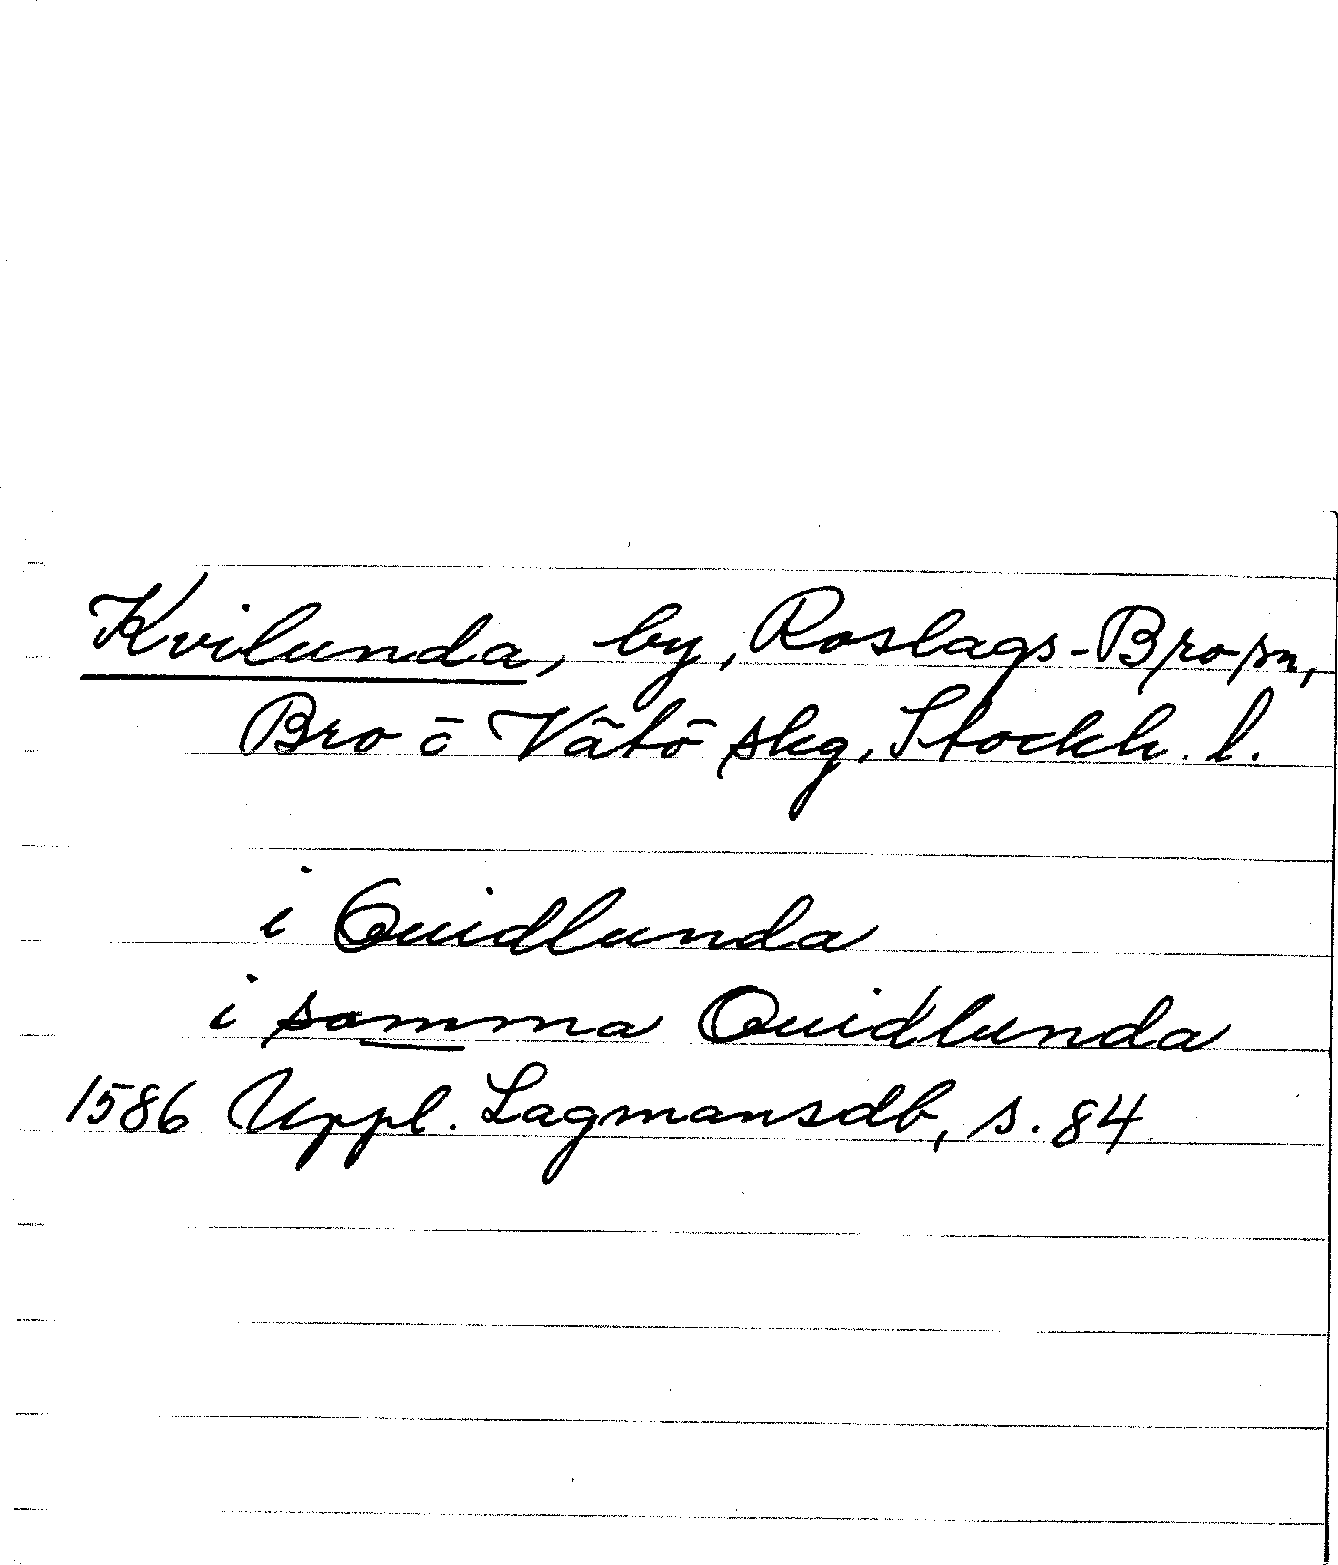 Kvilunda, by, Roslags-Bro sn,
Bro o Vätö skg, Stockh. l.
i Quidlunda
i somma Quidlunda
1586 Uppl. Lagmansdb, s. 84